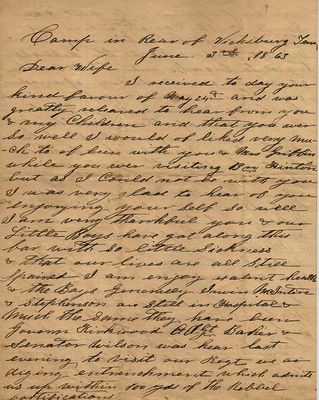 Camp in Rear of Vicksburg Tenn
June 3rd, 1863
Dear Wife
I received to day your
kind favour of May 24th and was
greatly releaved to hear from you
& my Children and that you ware
so well I would of liked very mu
ch to of bin with you & Mrs
while you were visiting Hinton
but as I Could not be with you
I was very glad to hear of you
enjoying your self so well
I am very thankful you & our
Little Boys have got along thus
far with So little Sickness
& that our lives are all Still
Spaired I am enjoy exalent health
& the Boys Generaly
& Stephenson are Still in Hospital &
Much the Same they have been
Govenor Kirkwood Baker &
Senator Wilson was hear last
evening to visit our Regt we ar
diging entrenchment which admits
us up within 100 yds of the Rebbel
fortifications